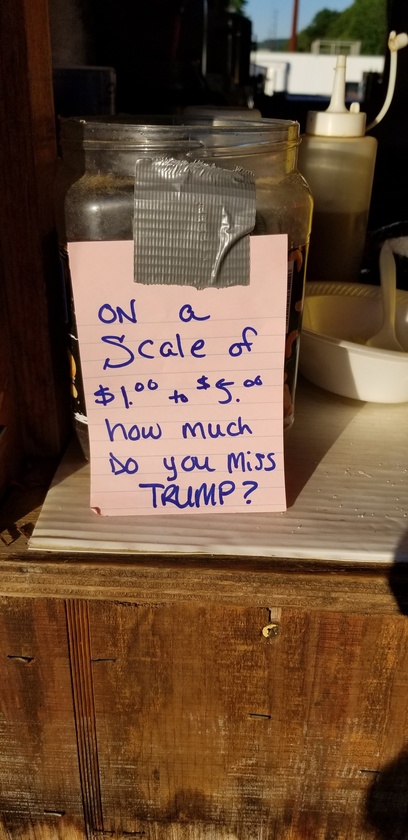 ON a
Scale of
$1.00 to $5.00
how much
Do you Miss
TRUMP?